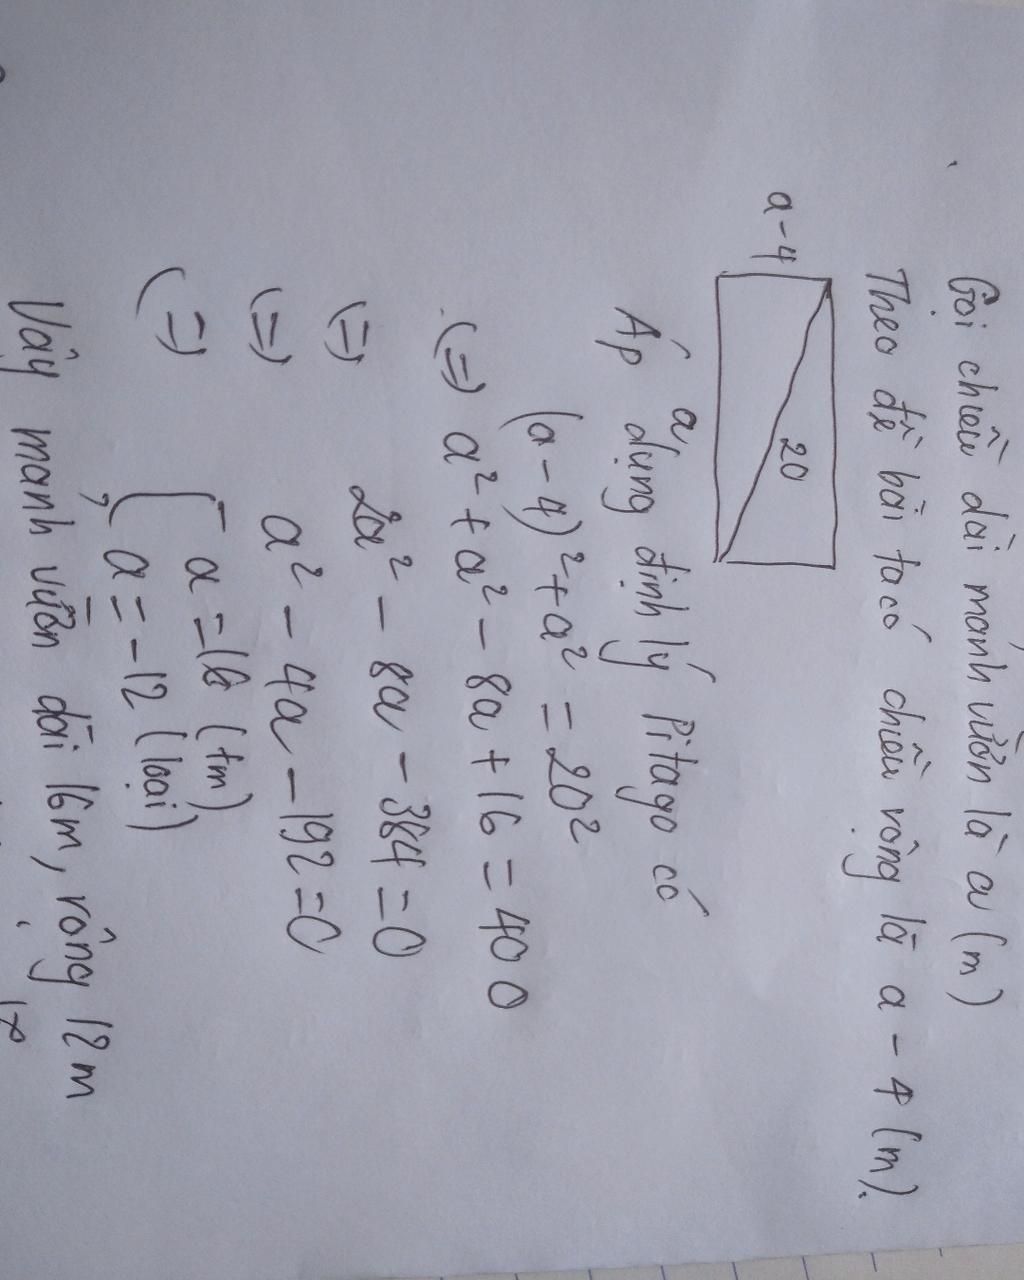 Gọi chiều dài mảnh vườn là a (m)
Theo đề bài ta có chiều rộng là a - 4 (m).
a-4
20
a
Áp dụng định lý Pitago có
(a-4)² + a² = 20²
(=) a² + a² - 8a + 16 = 400
(=) 2a² - 8a - 384 = 0
(=) a² - 4a - 192 = 0
(=) [ a = 16 (tm)
a = -12 (loại)
Vậy mảnh vườn dài 16m, rộng 12m